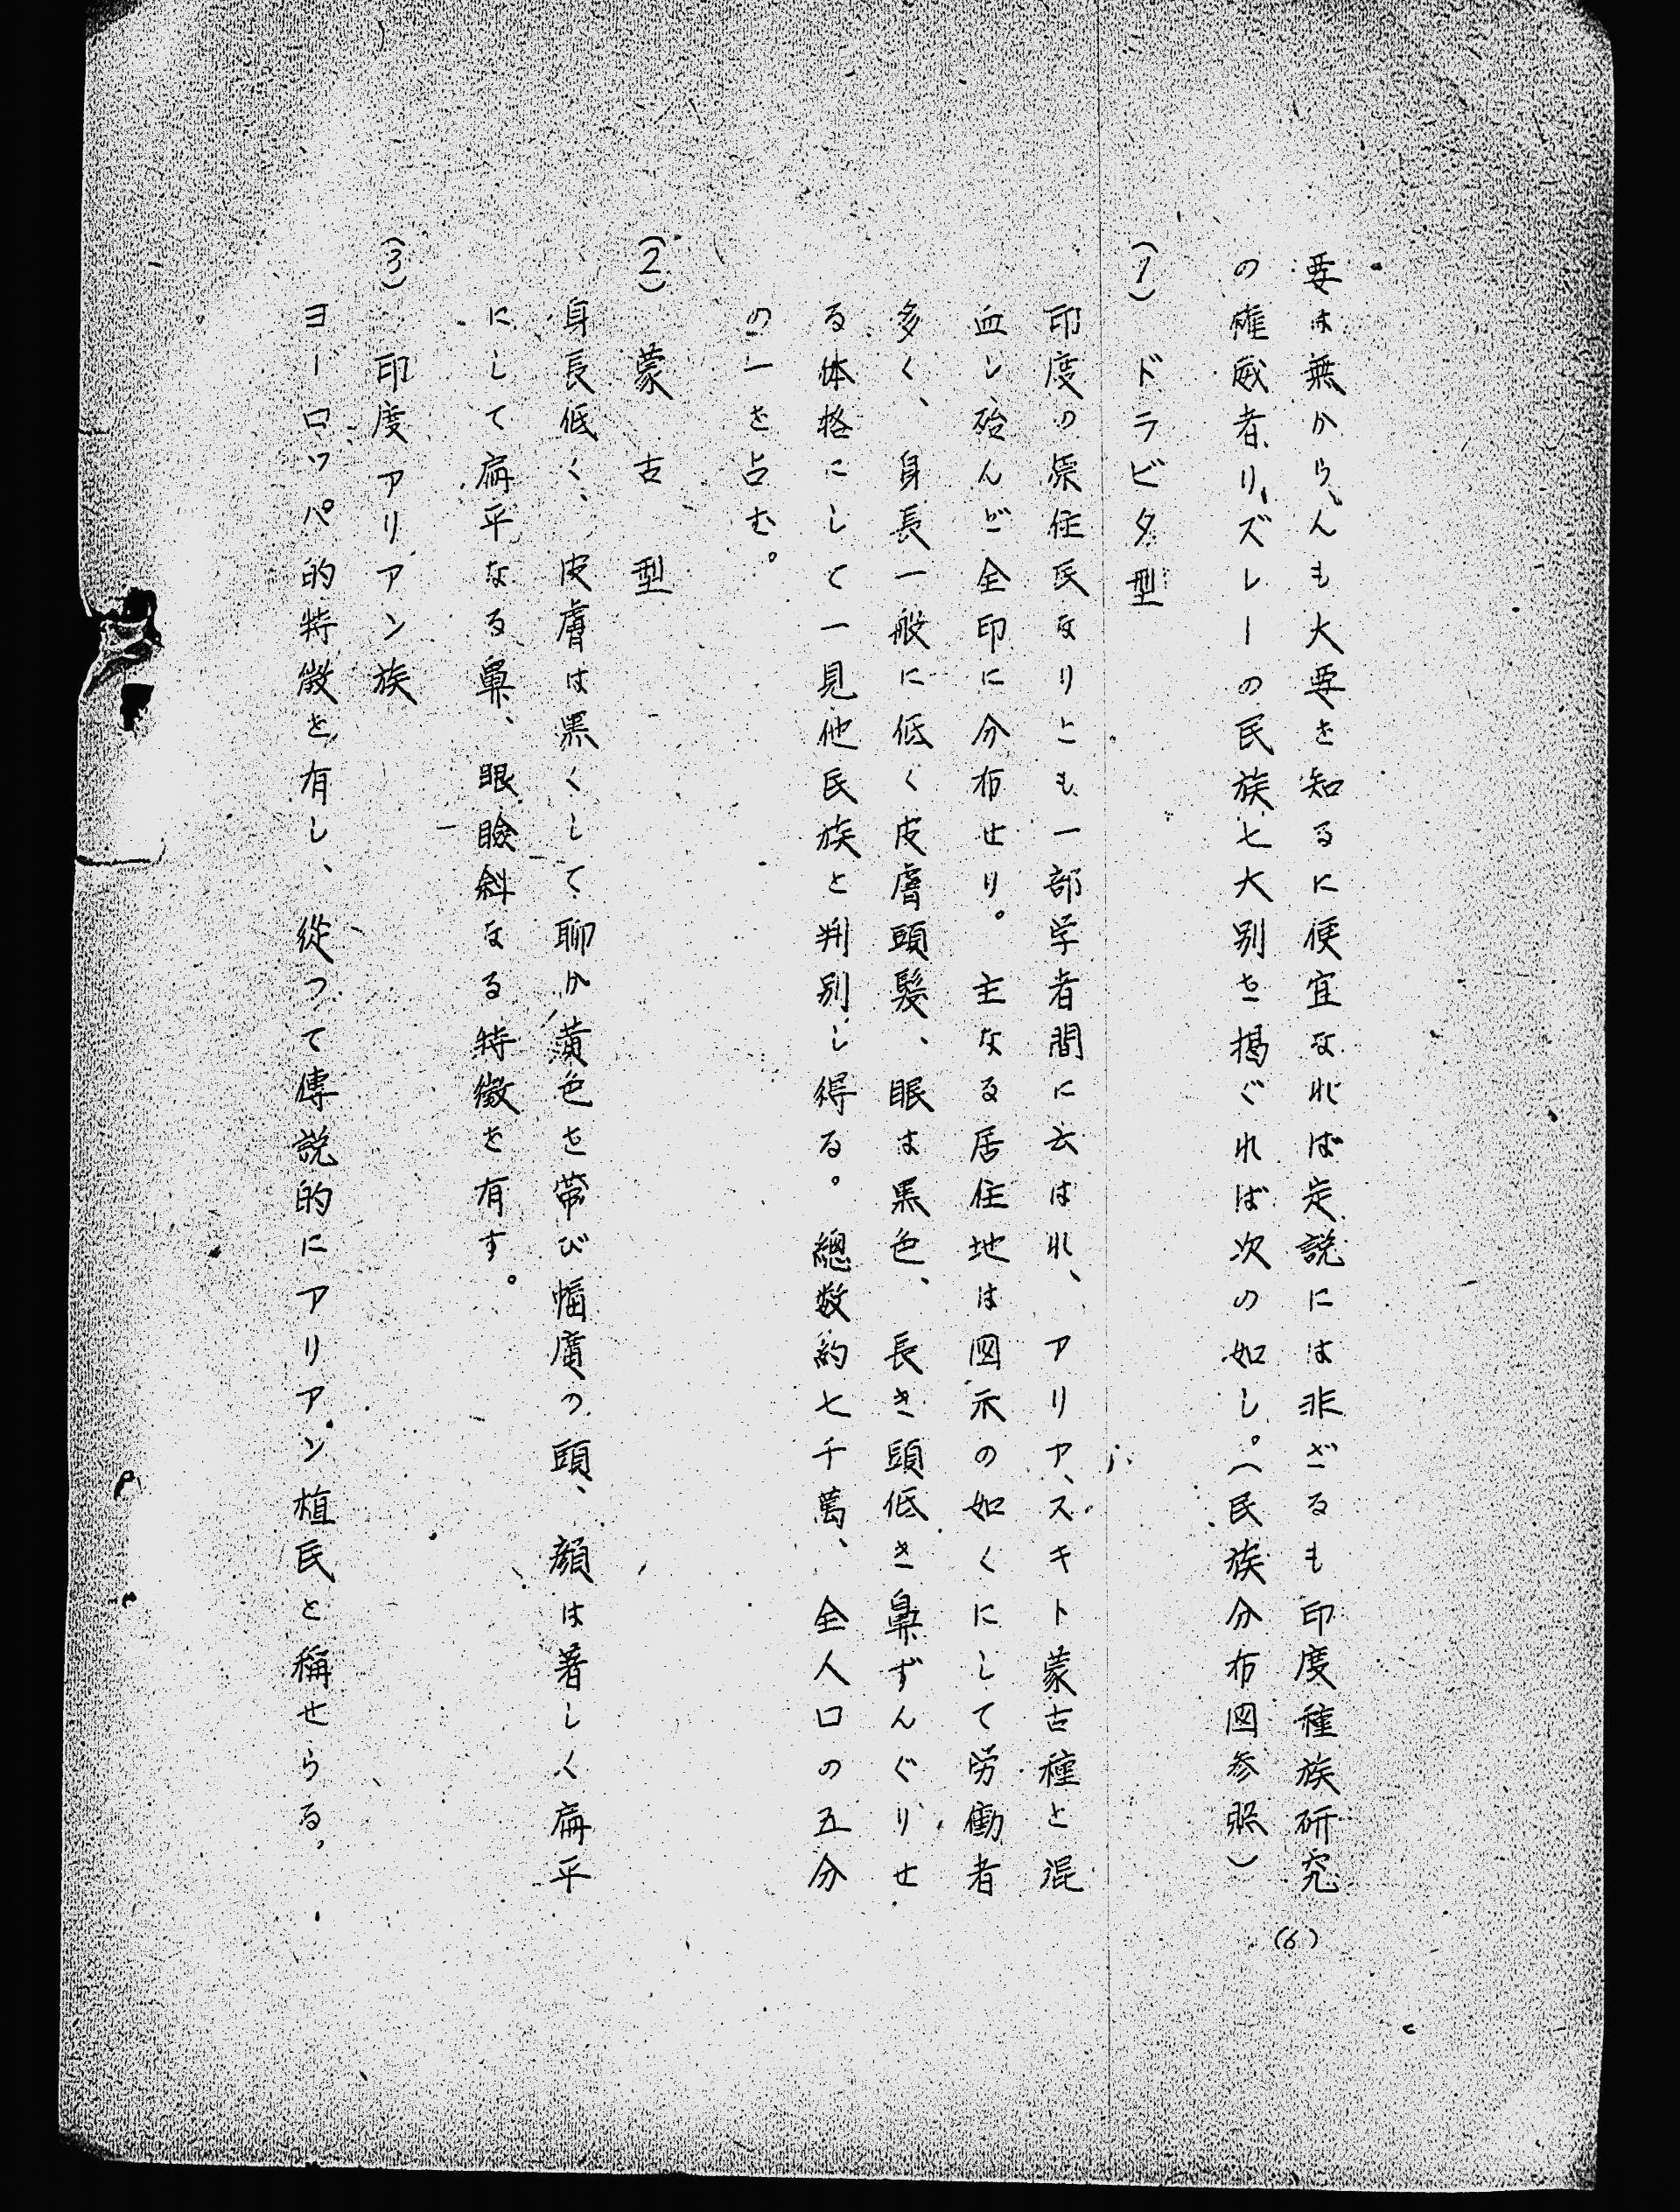 要は無からんも大要を知るに便宜なれば定説には非ざるも印度種族研究
の権威者リズレーの民族七大別を掲ぐれば次の如し。(民族分布図参照)
(1) ドラビタ型
印度の原住民なりとも一部学者間に云はれ、アリア、スキト蒙古種と混
血し殆んど全印に分布せり。主なる居住地は図示の如くにして労働者
多く、身長一般に低く皮膚頭髪、眼は黒色、長き頭低き鼻ずんぐりせ
る体格にして一見他民族と判別し得る。總数約七千萬、全人口の五分
の一を占む。
(2) 蒙古型
身長低く、皮膚は黒くして聊か黄色を帯び幅廣の頭、顔は著しく扁平
にして扁平なる鼻、眼瞼斜なる特徴を有す。
(3) 印度アリアン族
ヨーロッパ的特徴を有し、從つて傳説的にアリアン植民と稱せらる。
(6)